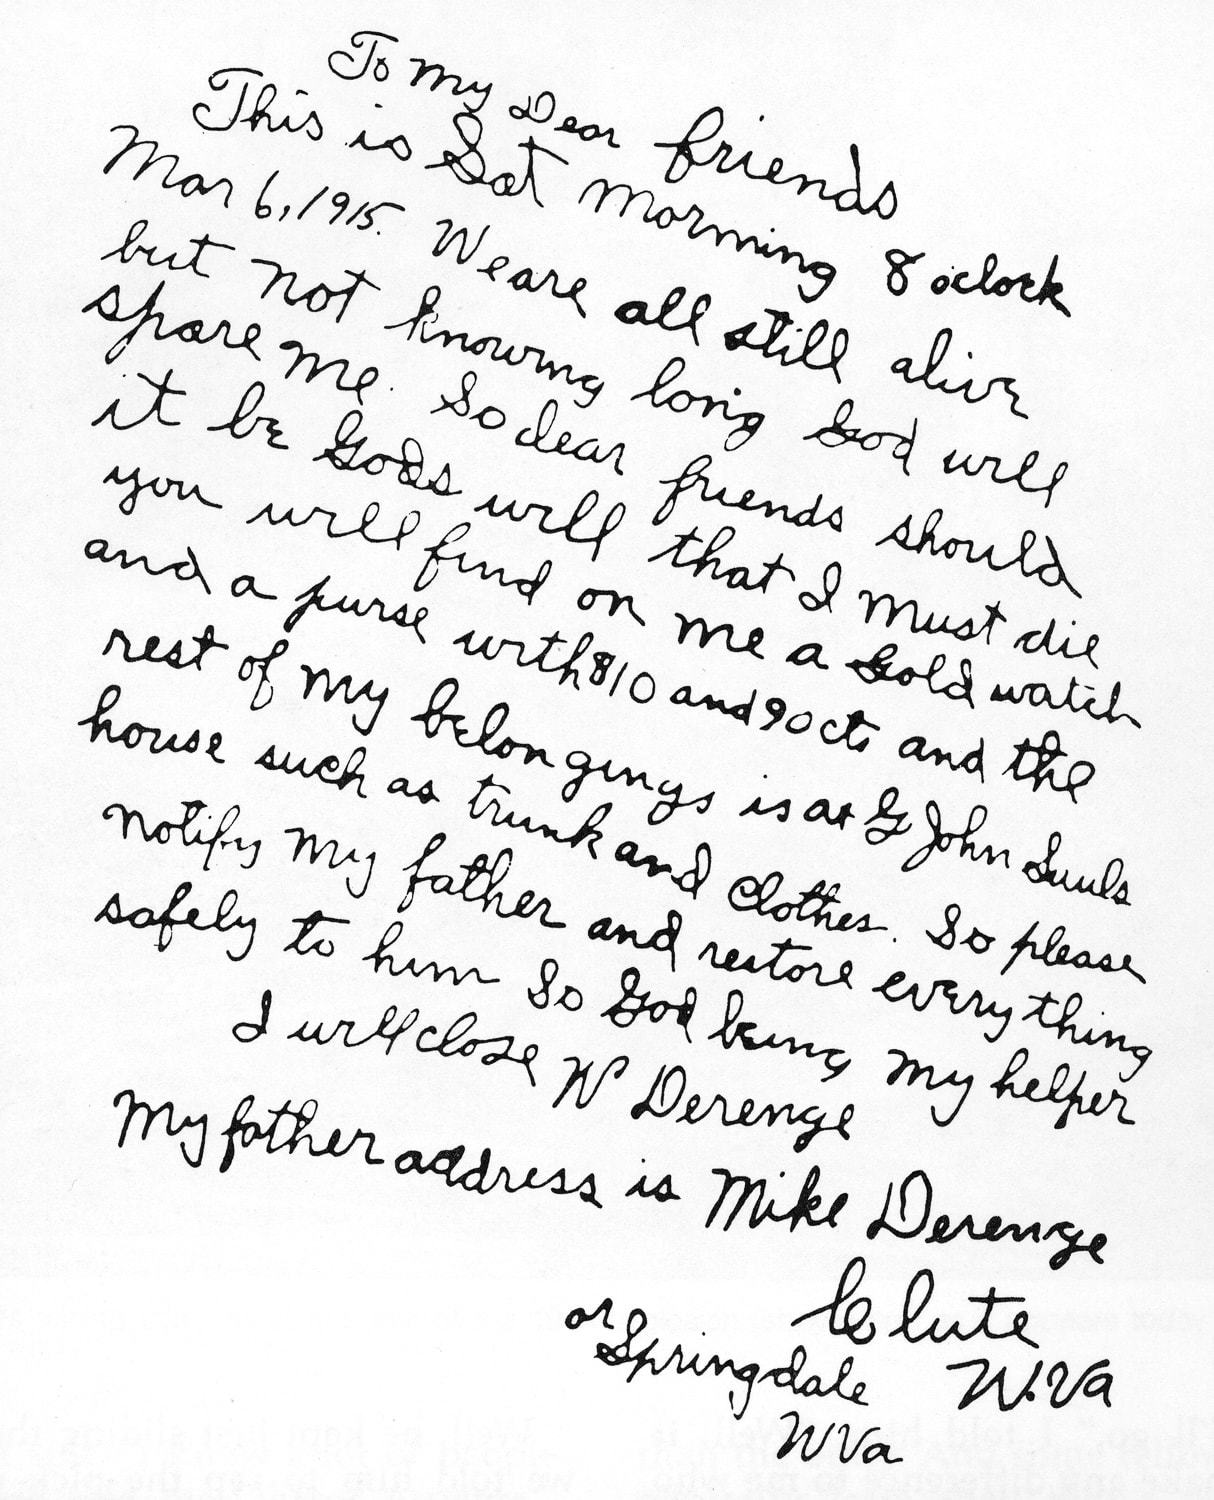 To My Dear friends
This is Sat Morning 8 o'clock
Mar 6, 1915. We are all still alive
but not knowing long God will
spare me. So dear friends should
it be Gods will that I must die
you will find on me a Gold watch
and a purse with $10 and 90cts and the
rest of my belongings is at G John
house such as trunk and clothes. So please
notify my father and restore everything
safely to him So God being my helper
I will close W Derenge
My father address is Mike Derenge
Clute
W.Va
or Springdale
W Va